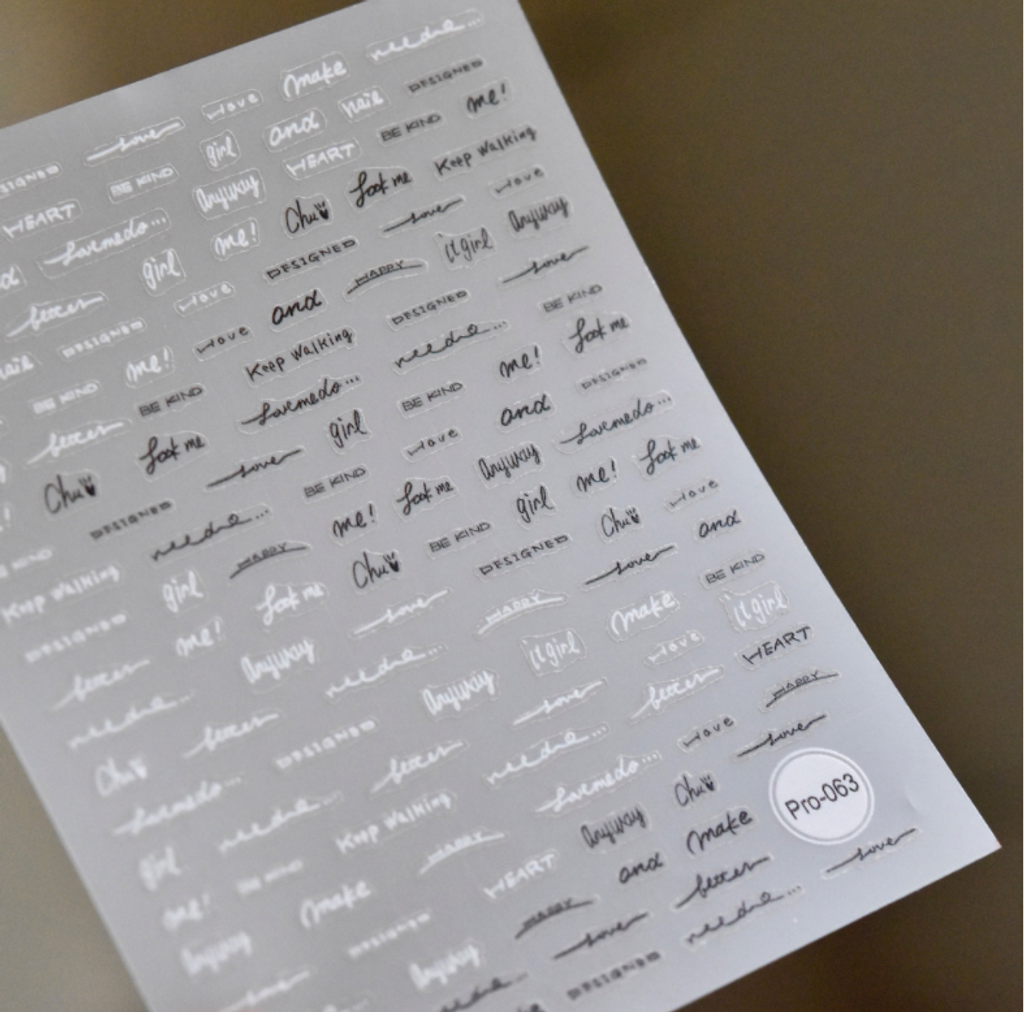 love make needme...
love DESIGNED
BE KIND girl and nail
HEART Anyway HEART BE KIND me!
Lovemedo... me! Chu look me Keep Walking
girl love love
better love DESIGNED HAPPY it girl Anyway
nail DESIGNED love and DESIGNED love
BE KIND me! Keep Walking needme... BE KIND
better BE KIND Lovemedo... BE KIND me! look me
look me girl love and DESIGNED
Chu love BE KIND Anyway Lovemedo...
DESIGNED needme... me! look me girl me! look me
BE KIND HAPPY Chu BE KIND Chu love
Keep Walking girl look me DESIGNED love and
DESIGNED me! love HAPPY make BE KIND
better Anyway needme... it girl love it girl
needme... better Anyway love better HEART
Chu DESIGNED better needme... love HAPPY
Lovemedo... needme... Keep Walking Lovemedo... Chu love
girl BE KIND HAPPY Anyway make Pro-063
me! make HEART and better love
Anyway DESIGNED HAPPY love needme...
love Anyway DESIGNED